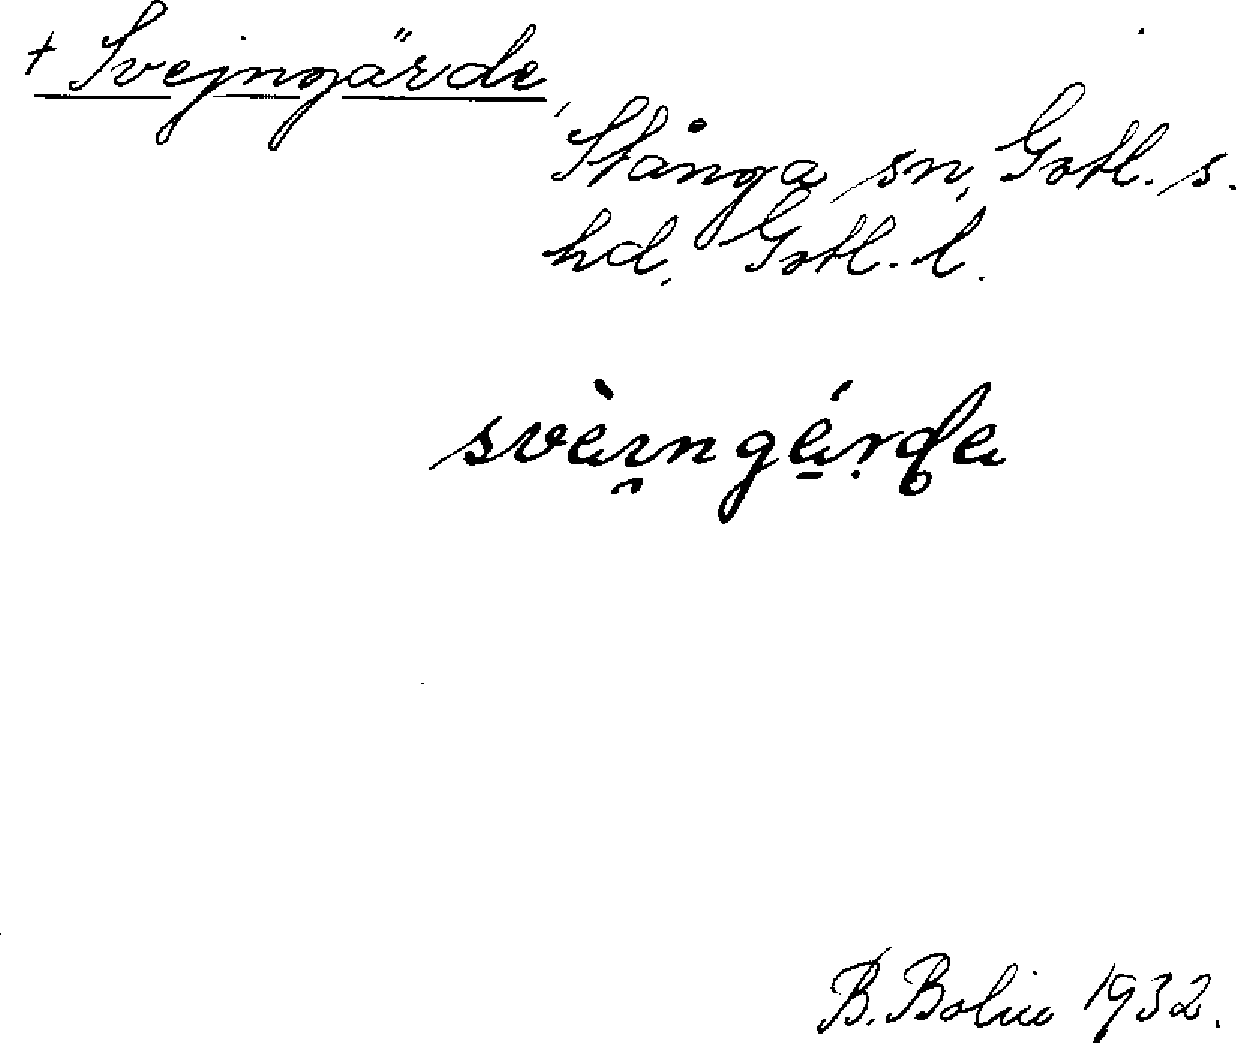 + Svejngärde,
Stånga sn, Gotl. s.
hd, Gotl. l.
svèi̯ngä́rda
B. Bolin 1932.